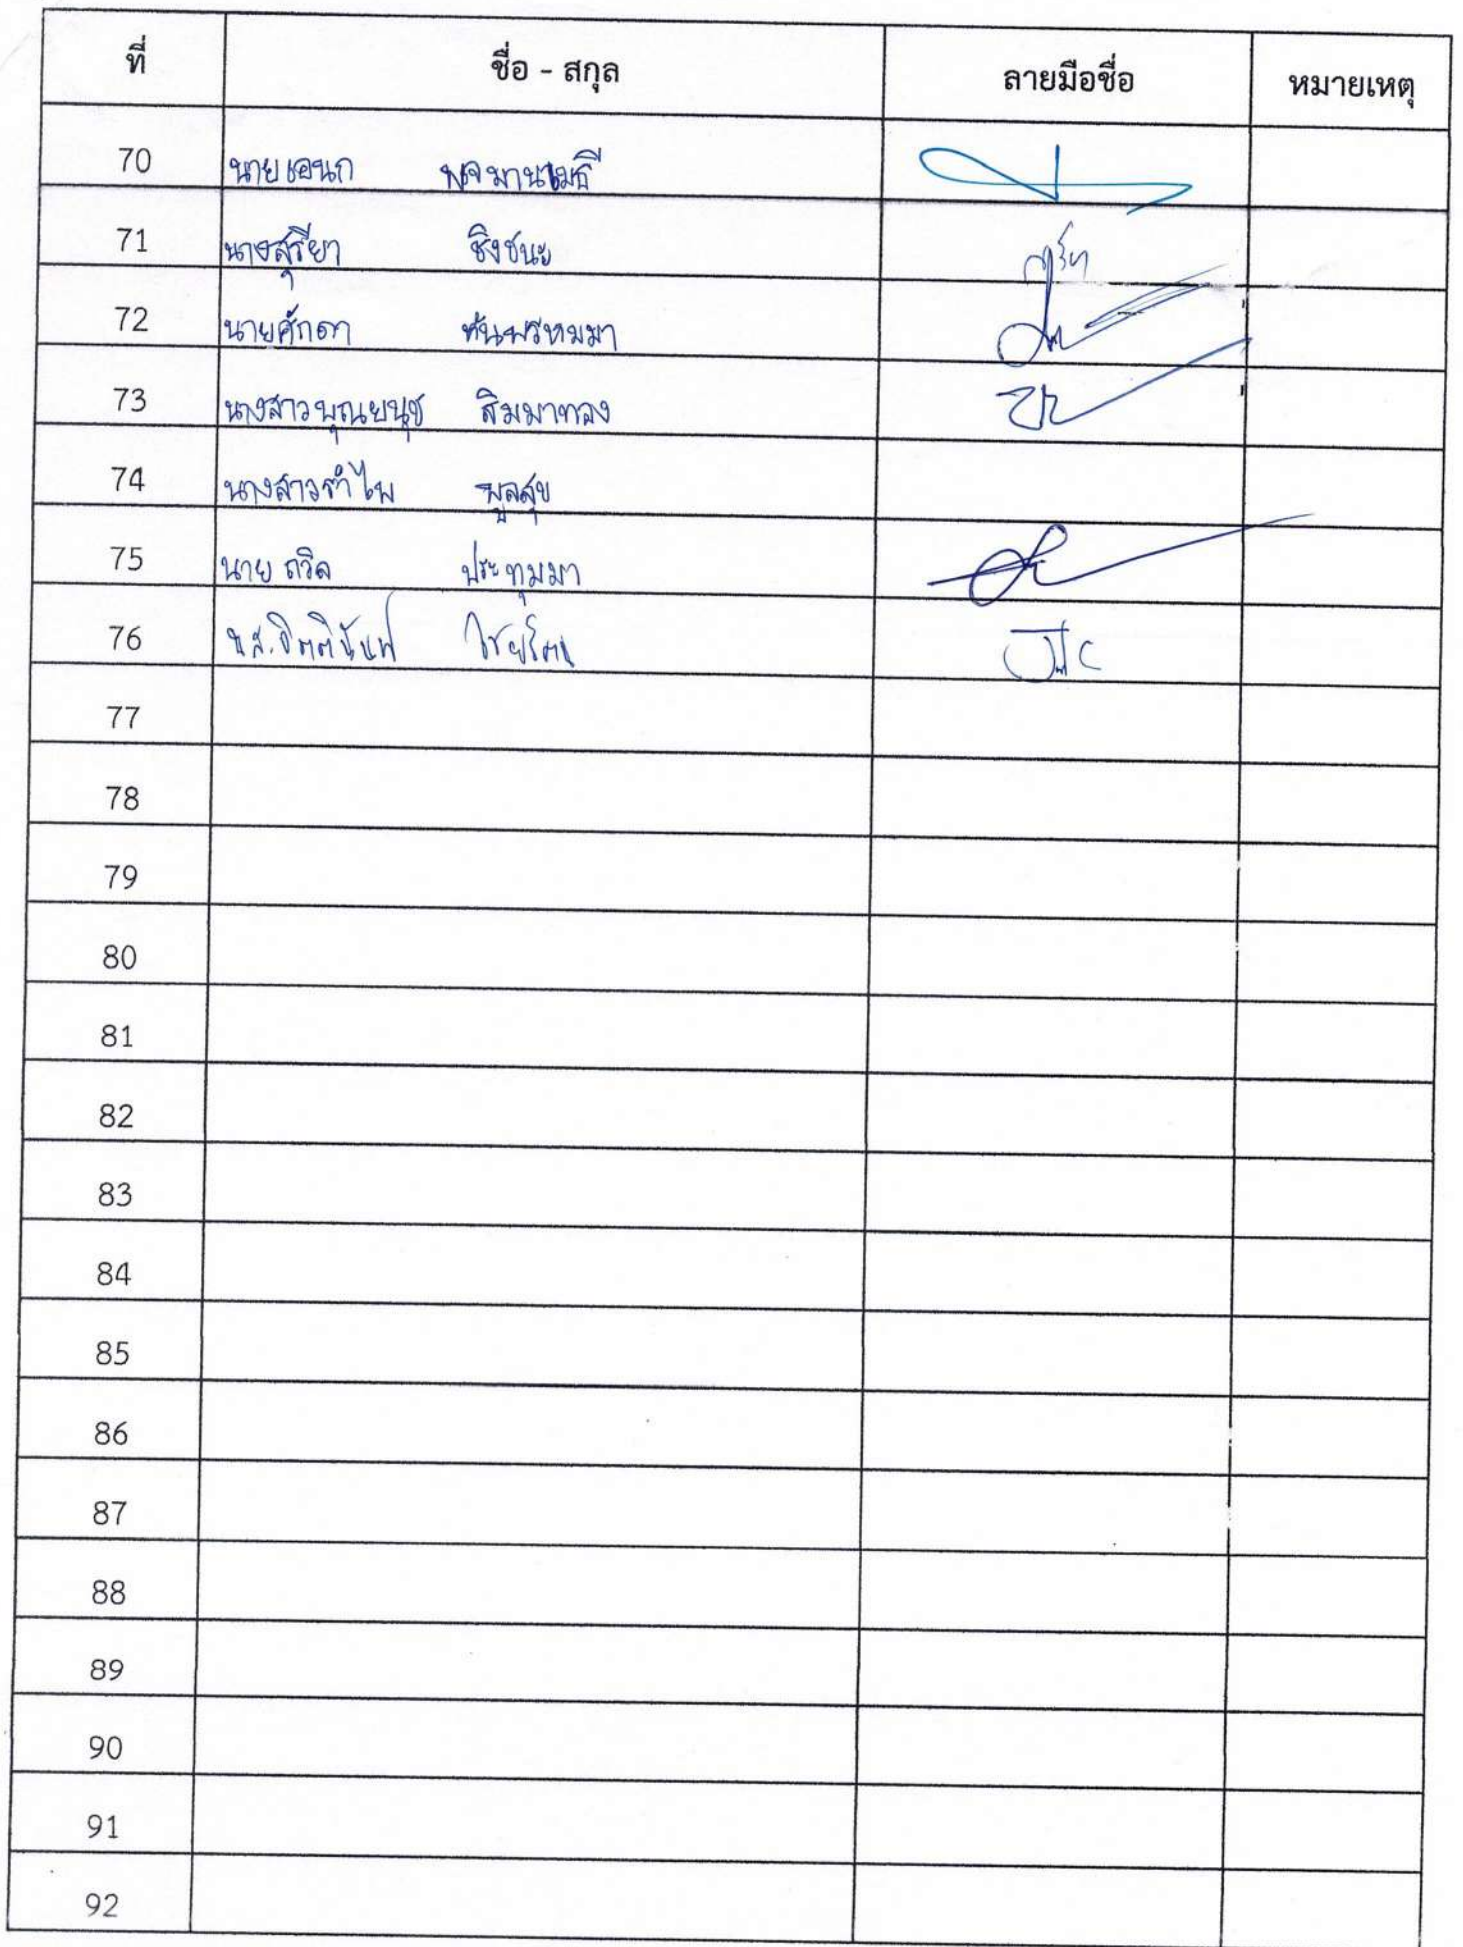 ที่ ชื่อ - สกุล ลายมือชื่อ หมายเหตุ
70 นายเอนก พจมานเมธี
71 นางสุรียา ชิงชนะ
72 นายศักดา หันพรหมมา
73 นางสาวบุณยนุช สิมมาทอง
74 นางสาวรำไพ พูลสุข
75 นาย ถวิล ประทุมมา
76 น.ส.
77
78
79
80
81
82
83
84
85
86
87
88
89
90
91
92